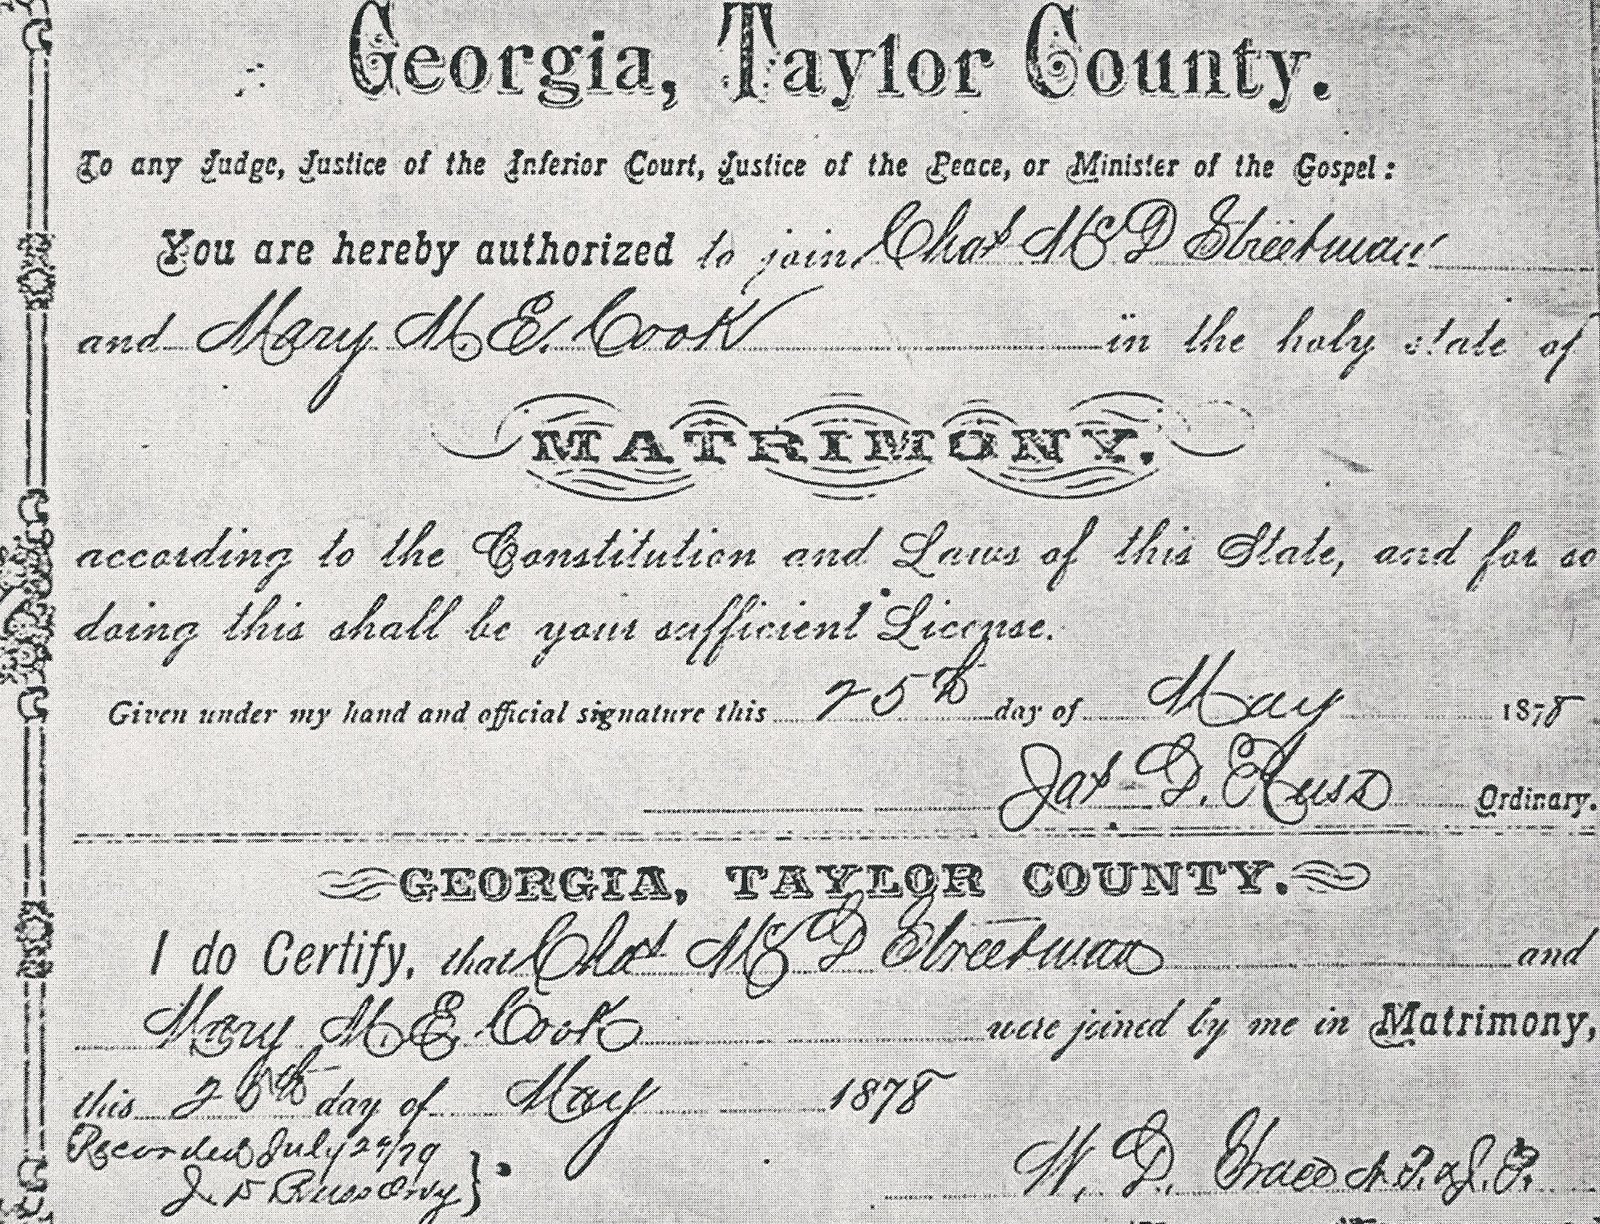 Georgia, Taylor County.
To any Judge, Justice of the Inferior Court, Justice of the Peace, or Minister of the Gospel:
You are hereby authorized to join Chas McD Streetman
and Mary M. E. Cook in the holy state of
MATRIMONY.
according to the Constitution and Laws of this State, and for so
doing this shall be your sufficient License.
Given under my hand and official signature this 25th day of May 1878
Jas D. Russ Ordinary.
GEORGIA, TAYLOR COUNTY.
I do Certify, that Chas McD Streetman and
Mary M. E. Cook were joined by me in Matrimony,
this 26th day of May 1878
Recorded July 29/79
J. D Russ Ordy
W. D. Grace J. P.